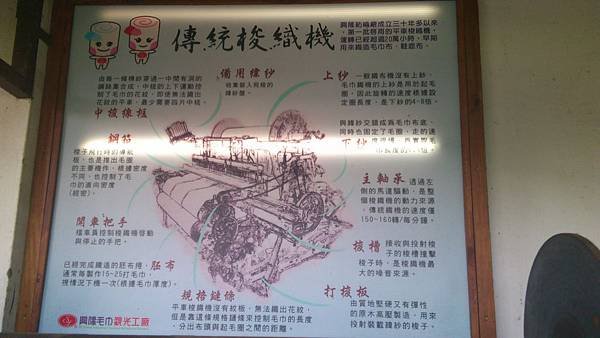 傳統梭織機
興隆紡織廠成立三十年多以來，
第一批啓用的平車梭織機，
運轉已經超過20萬小時，早期
用來織造毛巾布、鞋底布。
由每一條棉紗穿過一中間有洞的
鋼絲集合成，中柱的上下運動控
制了毛巾的花紋，即使無法織出
花紋的平車，最少需要四片中柱。
中梭像框
備用緯紗
收集穿入飛梭的
緯紗盤。
上紗
一般織布機沒有上紗，
毛巾織機的上紗是用於起毛
圈，因此旋轉的速度根據設
定圈長度，是下紗的4~8倍。
與緯紗交織成為毛巾布底，
同時也固定了毛圈，走的速
下紗
鋼筘
梭子飛行時的導航
板，也是推出毛圈
的主要機件，根據密度
不同，也控制了毛
巾的直向密度
(經密)。
主軸承
透過左
側的馬達驅動，是整
個梭織機的動力來源
，傳統織機的速度僅
150~160轉/每分鐘。
開車把手
擋車員控制梭織機啓動
與停止的手把。
接槽
接收與投射梭
子的梭槽撞擊
梭子時，是梭織機最
大的噪音來源。
胚布
已經完成織造的胚布捲，
通常每製作15~25打毛巾，
視情況下機一次(根據毛巾厚度)。
規格鏈條
平車梭織機沒有紋板，無法織出花紋，
但是靠這條規格鏈條來控制毛巾的長度
，分出布頭與起毛圈之間的距離。
打梭板
由質地堅硬又有彈性
的原木高壓製造，用來
投射裝載緯紗的梭子。
興隆毛巾觀光工廠